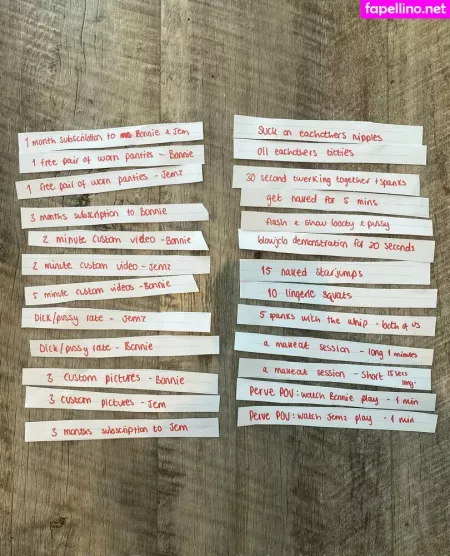 fapellino.net
1 month subscription to Bonnie & Jem
1 free pair of worn panties - Bonnie
1 free pair of worn panties - Jemz
3 months subscription to Bonnie
2 minute custom video - Bonnie
2 minute custom video - Jemz
5 minute custom videos - Bonnie
Dick/pussy rate - Jemz
Dick/pussy rate - Bonnie
3 custom pictures - Bonnie
3 custom pictures - Jem
3 months subscription to Jem
Suck on eachothers nipples
Oil eachothers titties
30 second twerking together + spanks
get naked for 5 mins
flash & show booty & pussy
blowjob demonstration for 20 seconds
15 naked starjumps
10 lingerie squats
5 spanks with the whip - both of us
a makeout session - long 1 minutes
a makeout session - short 15 secs long
Perve POV: watch Bonnie play - 1 min
Perve POV: watch Jemz play - 1 min